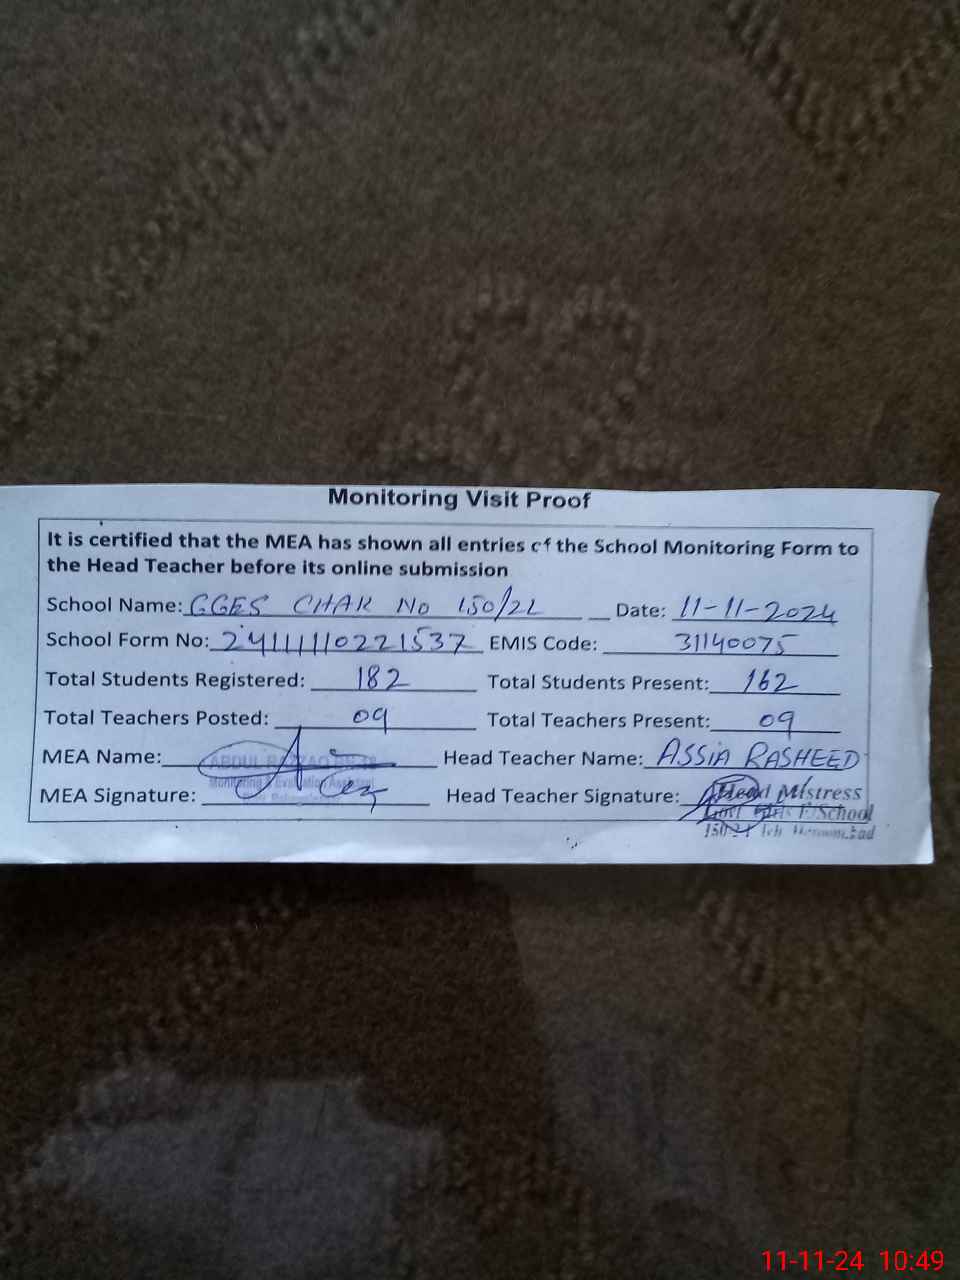 Monitoring Visit Proof
It is certified that the MEA has shown all entries of the School Monitoring Form to
the Head Teacher before its online submission
School Name: GGES CHAK No 150/2L Date: 11-11-2024
School Form No: 24111110221537 EMIS Code: 31140075
Total Students Registered: 182 Total Students Present: 162
Total Teachers Posted: 09 Total Teachers Present: 09
MEA Name: ABDUL Head Teacher Name: ASSIA RASHEED
Monitoring & Evaluation Assistant
MEA Signature: Head Teacher Signature: Head Mistress
Govt Girls E/School
11-11-24 10:49